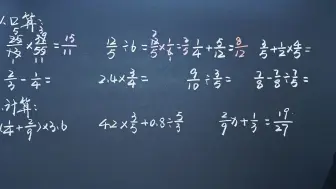 1.口算:
25/13 × 39/55 = 15/11  12/5 ÷ 6 = 12/5 × 1/6 =  1/4 + 5/12 = 8/12  3/5 + 1/2 × 4/5 =
2/3 - 1/4 =  2.4 × 3/4 =  9/10 ÷ 3/5 =  7/8 - 7/8 ÷ 7/5 =
计算:
(1/4 + 2/9) × 3.6  4.2 × 3/5 + 0.8 ÷ 5/3  2/9 x + 1/3 = 19/27